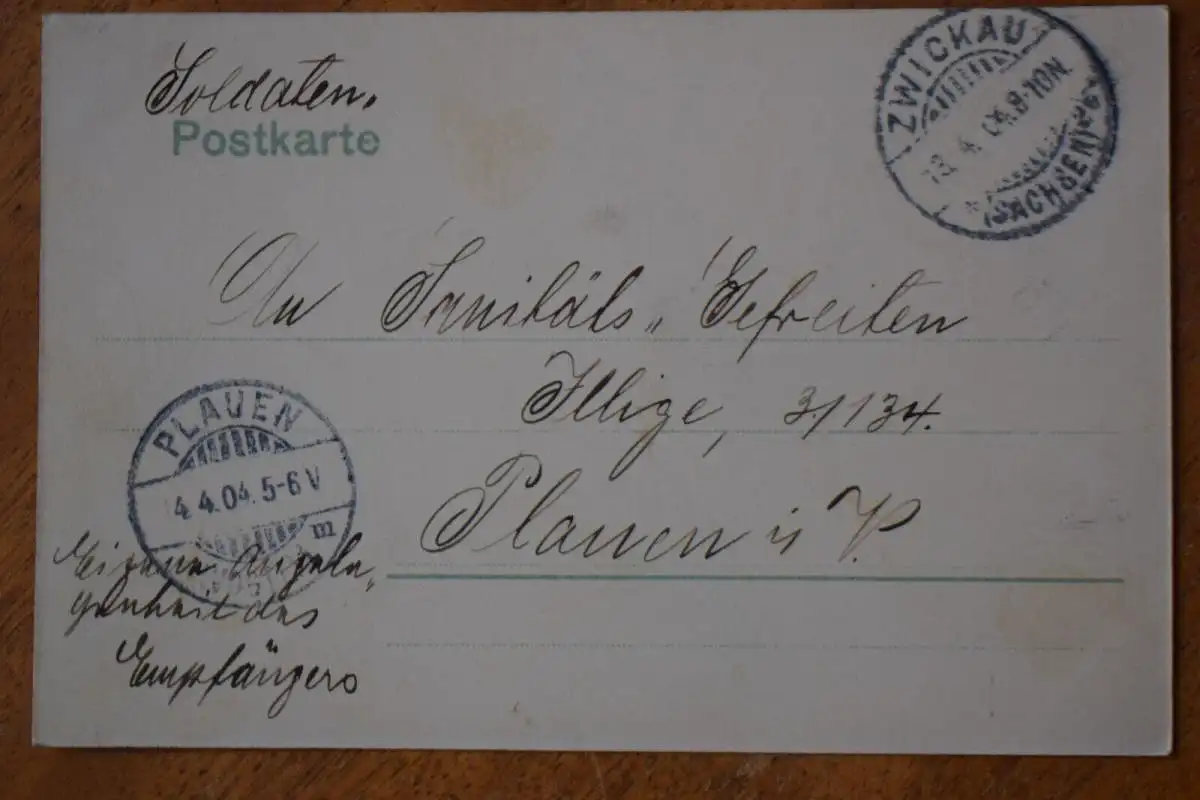 Soldaten.
Postkarte
ZWICKAU
13. 4. 04. 8-10N.
(SACHSEN)
An Sanitäts„ Gefreiten
Illige, 3/134.
Plauen i/ V.
PLAUEN
14.4.04. 5-6 V
m
Eigene Angele„
genheit des
Empfängers